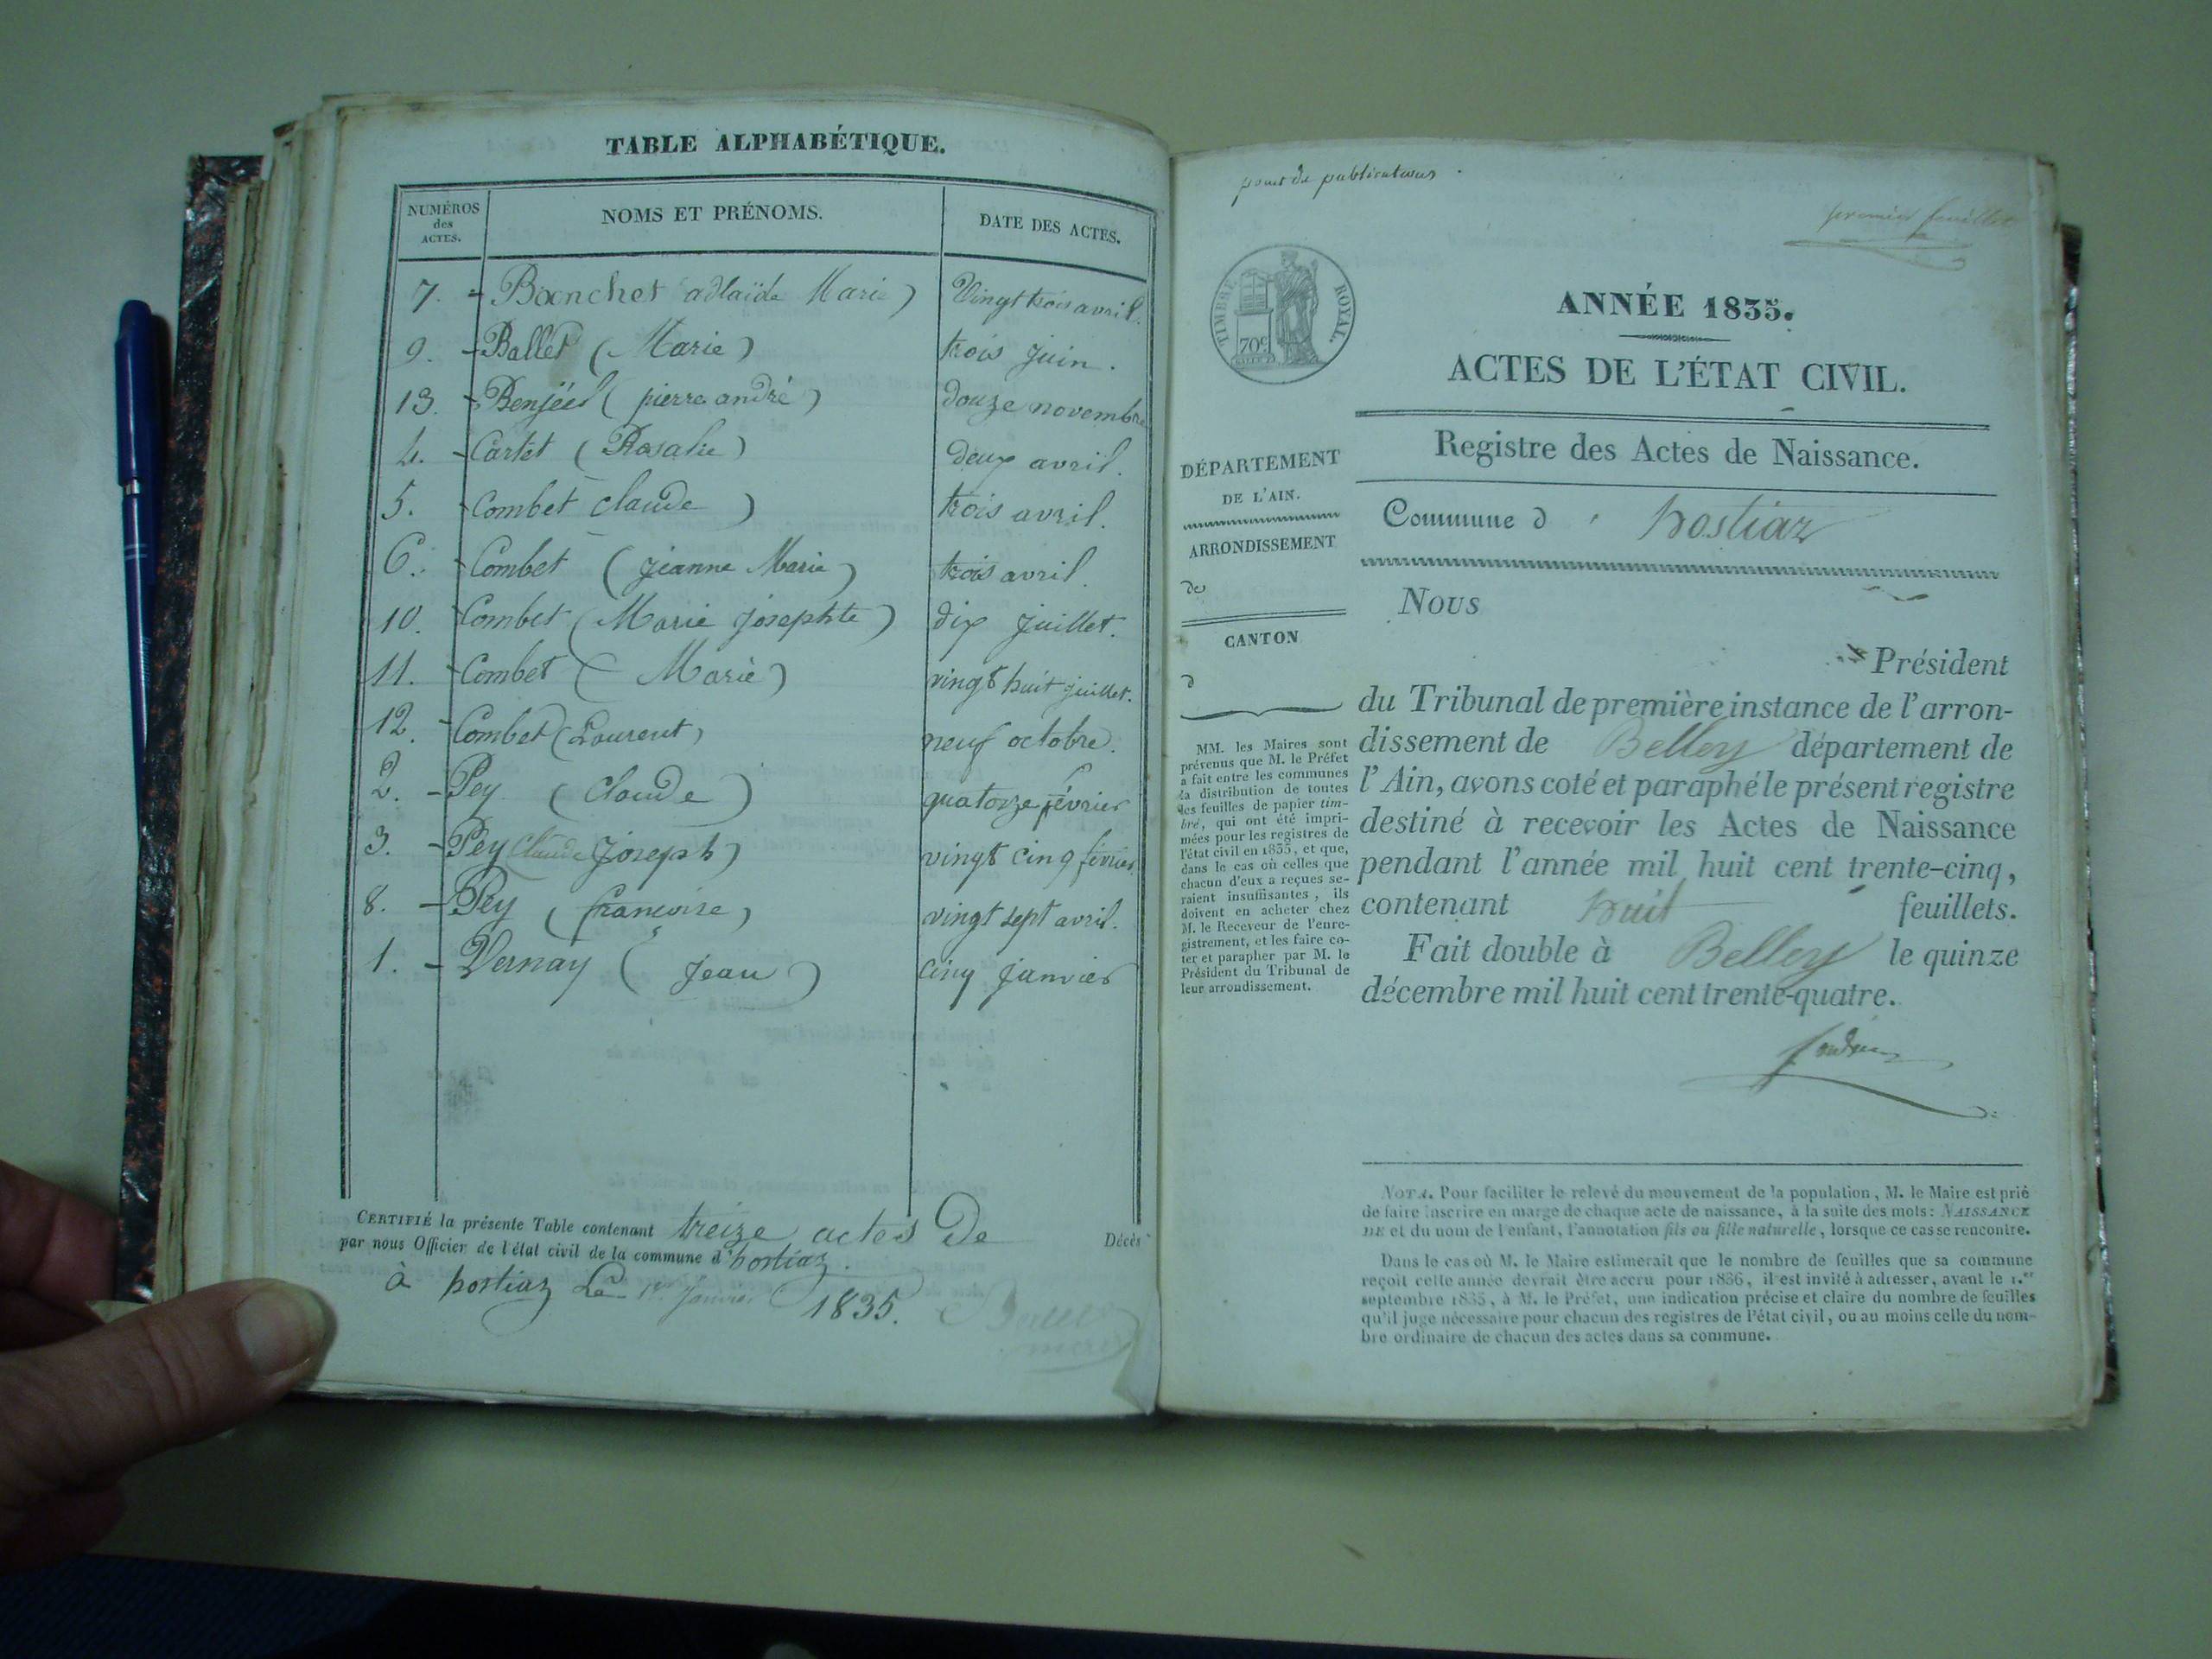 TABLE ALPHABÉTIQUE.
NUMÉROS des ACTES. NOMS ET PRÉNOMS. DATE DES ACTES.
7. - Banchet adlaïde Marie) Vingt trois avril.
9. - Ballet (Marie) trois juin.
13. - (pierre andré) douze novembre
4. - Cartet (Rosalie) deux avril.
5. - Combet claude) trois avril.
6. - Combet (jeanne Marie) trois avril.
10. - Combet (Marie josephte) dix juillet.
11. - Combet (Marie) vingt huit juillet.
12. - Combet (Laurent) neuf octobre.
2. - Pey (Claude) quatorze février
3. - Pey Claude Joseph) vingt cinq février
8. - Pey (françoise) vingt sept avril.
1. - Vernay (Jean) cinq janvier
CERTIFIÉ la présente Table contenant treize actes De Décès
par nous Officier de l'état civil de la commune d'hostiaz.
à hostiaz Le 1er Janvier 1835.
Ballet
maire
pour de publications.
premier feuillet
TIMBRE ROYAL.
70c
ANNÉE 1835.
ACTES DE L'ÉTAT CIVIL.
Registre des Actes de Naissance.
Commune d' hostiaz
DÉPARTEMENT
DE L'AIN.
ARRONDISSEMENT
de
CANTON
d
MM. les Maires sont
prévenus que M. le Préfet
a fait entre les communes
la distribution de toutes
les feuilles de papier tim-
bré, qui ont été impri-
mées pour les registres de
l'état civil en 1835, et que,
dans le cas où celles que
chacun d'eux a reçues se-
raient insuffisantes, ils
doivent en acheter chez
M. le Receveur de l'enre-
gistrement, et les faire co-
ter et parapher par M. le
Président du Tribunal de
leur arrondissement.
Nous
Président
du Tribunal de première instance de l'arron-
dissement de Belley département de
l'Ain, avons coté et paraphé le présent registre
destiné à recevoir les Actes de Naissance
pendant l'année mil huit cent trente-cinq,
contenant huit feuillets.
Fait double à Belley le quinze
décembre mil huit cent trente-quatre.
NOTA. Pour faciliter le relevé du mouvement de la population, M. le Maire est prié
de faire inscrire en marge de chaque acte de naissance, à la suite des mots: NAISSANCE
DE et du nom de l'enfant, l'annotation fils ou fille naturelle, lorsque ce cas se rencontre.
Dans le cas où M. le Maire estimerait que le nombre de feuilles que sa commune
reçoit cette année devrait être accru pour 1836, il est invité à adresser, avant le 1.er
septembre 1835, à M. le Préfet, une indication précise et claire du nombre de feuilles
qu'il juge nécessaire pour chacun des registres de l'état civil, ou au moins celle du nom-
bre ordinaire de chacun des actes dans sa commune.